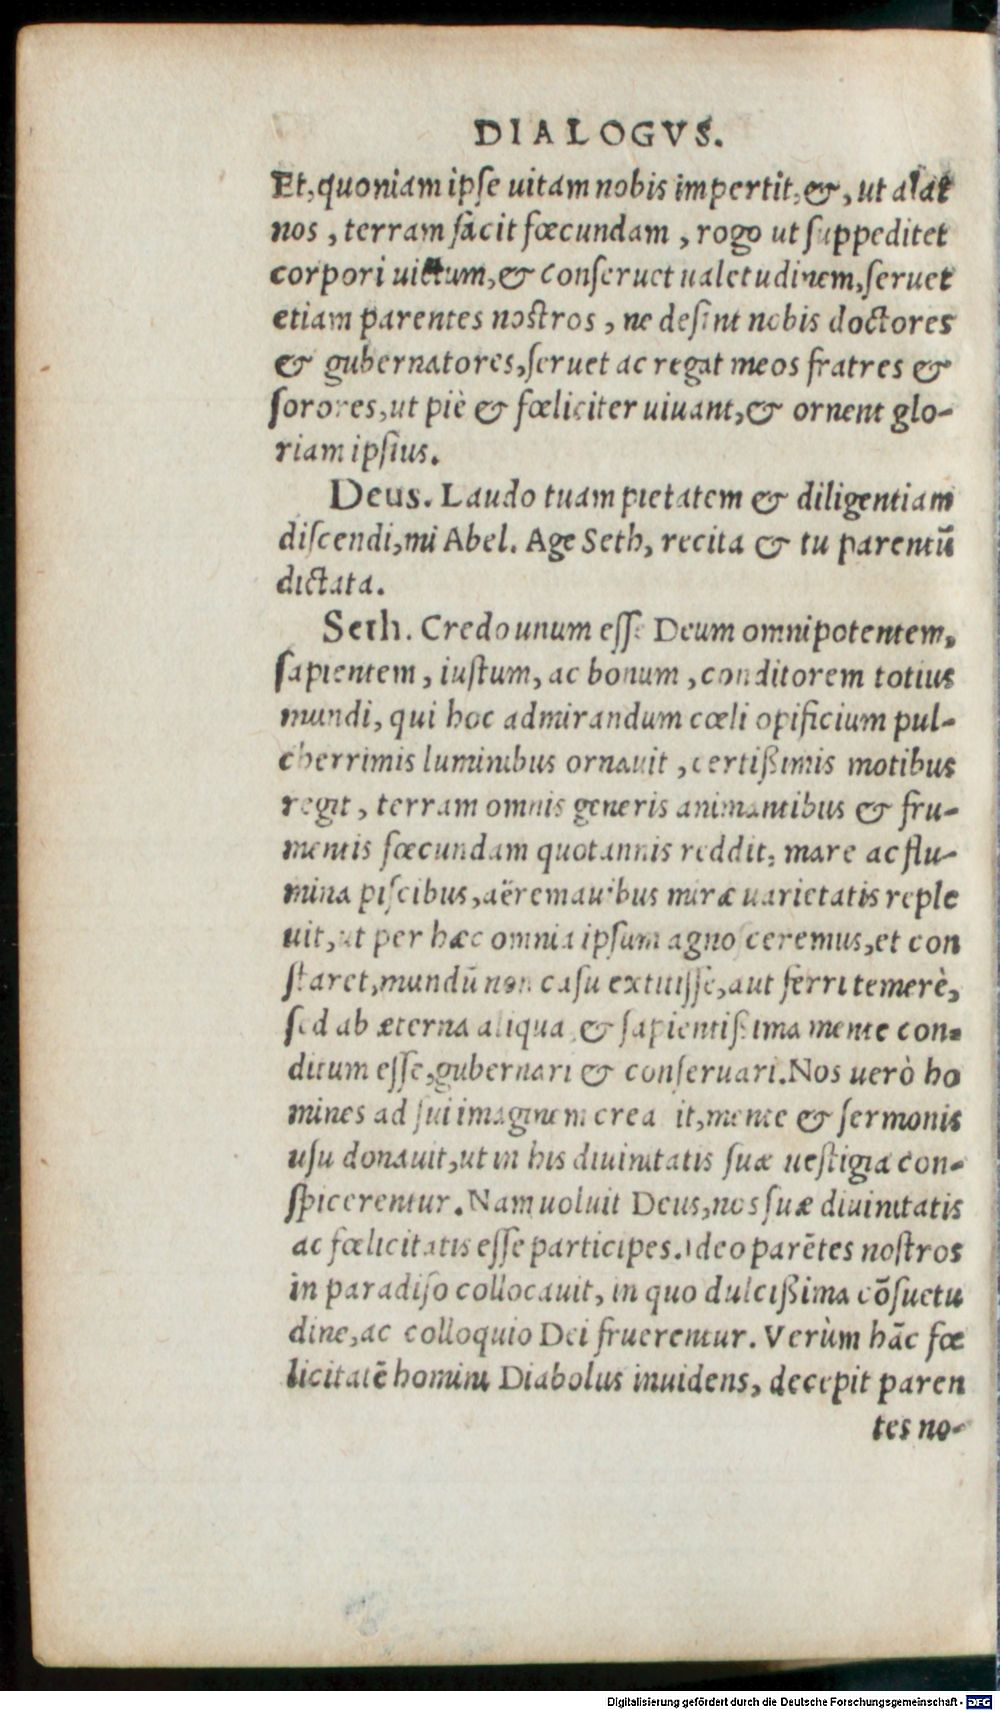 DIALOGVS.
Et, quoniam ipſe uitam nobis impertit, &, ut alat
nos, terram facit fœcundam, rogo ut ſuppeditet
corpori uictum, & conſeruet ualetudinem, ſeruet
etiam parentes noſtros, ne deſint nobis doctores
& gubernatores, ſeruet ac regat meos fratres &
ſorores, ut piè & fœliciter uiuant, & ornent glo-
riam ipſius.
Deus. Laudo tuam pietatem & diligentiam
diſcendi, mi Abel. Age Seth, recita & tu parentũ
dictata.
Seth. Credo unum eſſe Deum omnipotentem,
ſapientem, iuſtum, ac bonum, conditorem totius
mundi, qui hoc admirandum cœli opificium pul-
cherrimis luminibus ornauit, certißimis motibus
regit, terram omnis generis animantibus & fru-
mentis fœcundam quotannis reddit, mare ac flu-
mina piſcibus, aërem auibus miræ uarietatis reple
uit, ut per hæc omnia ipſum agnoſceremus, et con
ſtaret, mundũ non caſu extitiſſe, aut ferri temerè,
ſed ab æterna aliqua & ſapientißima mente con-
ditum eſſe, gubernari & conſeruari. Nos uerò ho
mines ad ſui imaginem crea it, mente & ſermonis
uſu donauit, ut in his diuinitatis ſuæ ueſtigia con-
ſpicerentur. Nam uoluit Deus, nos ſuæ diuinitatis
ac fœlicitatis eſſe participes. Ideo parẽtes noſtros
in paradiſo collocauit, in quo dulcißima cõſuetu
dine, ac colloquio Dei fruerentur. Verùm hãc fœ
licitatẽ homini Diabolus inuidens, decepit paren
tes no-
Digitalisierung gefördert durch die Deutsche Forschungsgemeinschaft - DFG